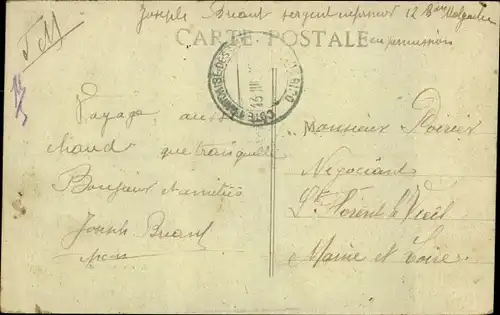 Joseph Briant sergent infirmier 12 Bon Malgache
en permission
F M
CARTE POSTALE
CÔTE FRANÇAISE DES
Voyage aussi
chaud que tranquille
Bonjour et amitiés
Joseph Briant
Monsieur Poirier
Négociant
St Florent le Vieil
Maine et Loire